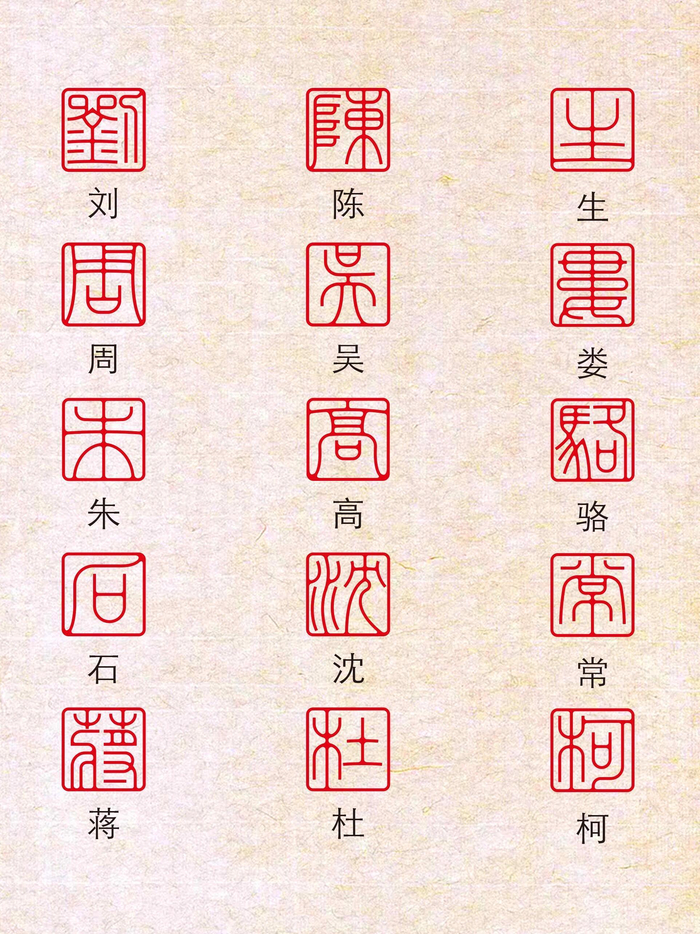 劉 陳 生
刘 陈 生
周 吳 婁
周 吴 娄
朱 高 駱
朱 高 骆
石 沈 常
石 沈 常
蔣 杜 柯
蒋 杜 柯